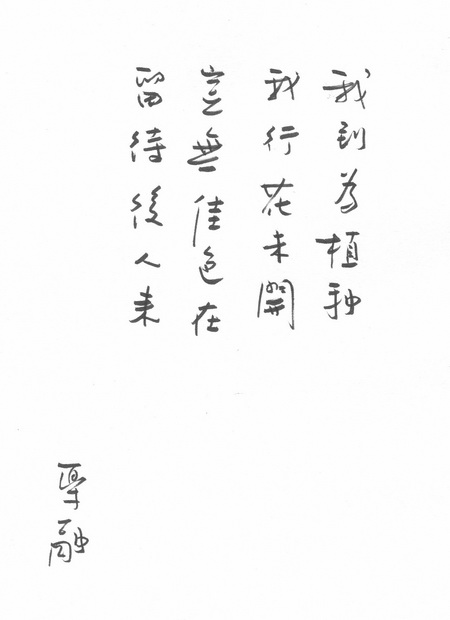 我到為植种
我行花未開
豈無佳色在
留待後人来
融